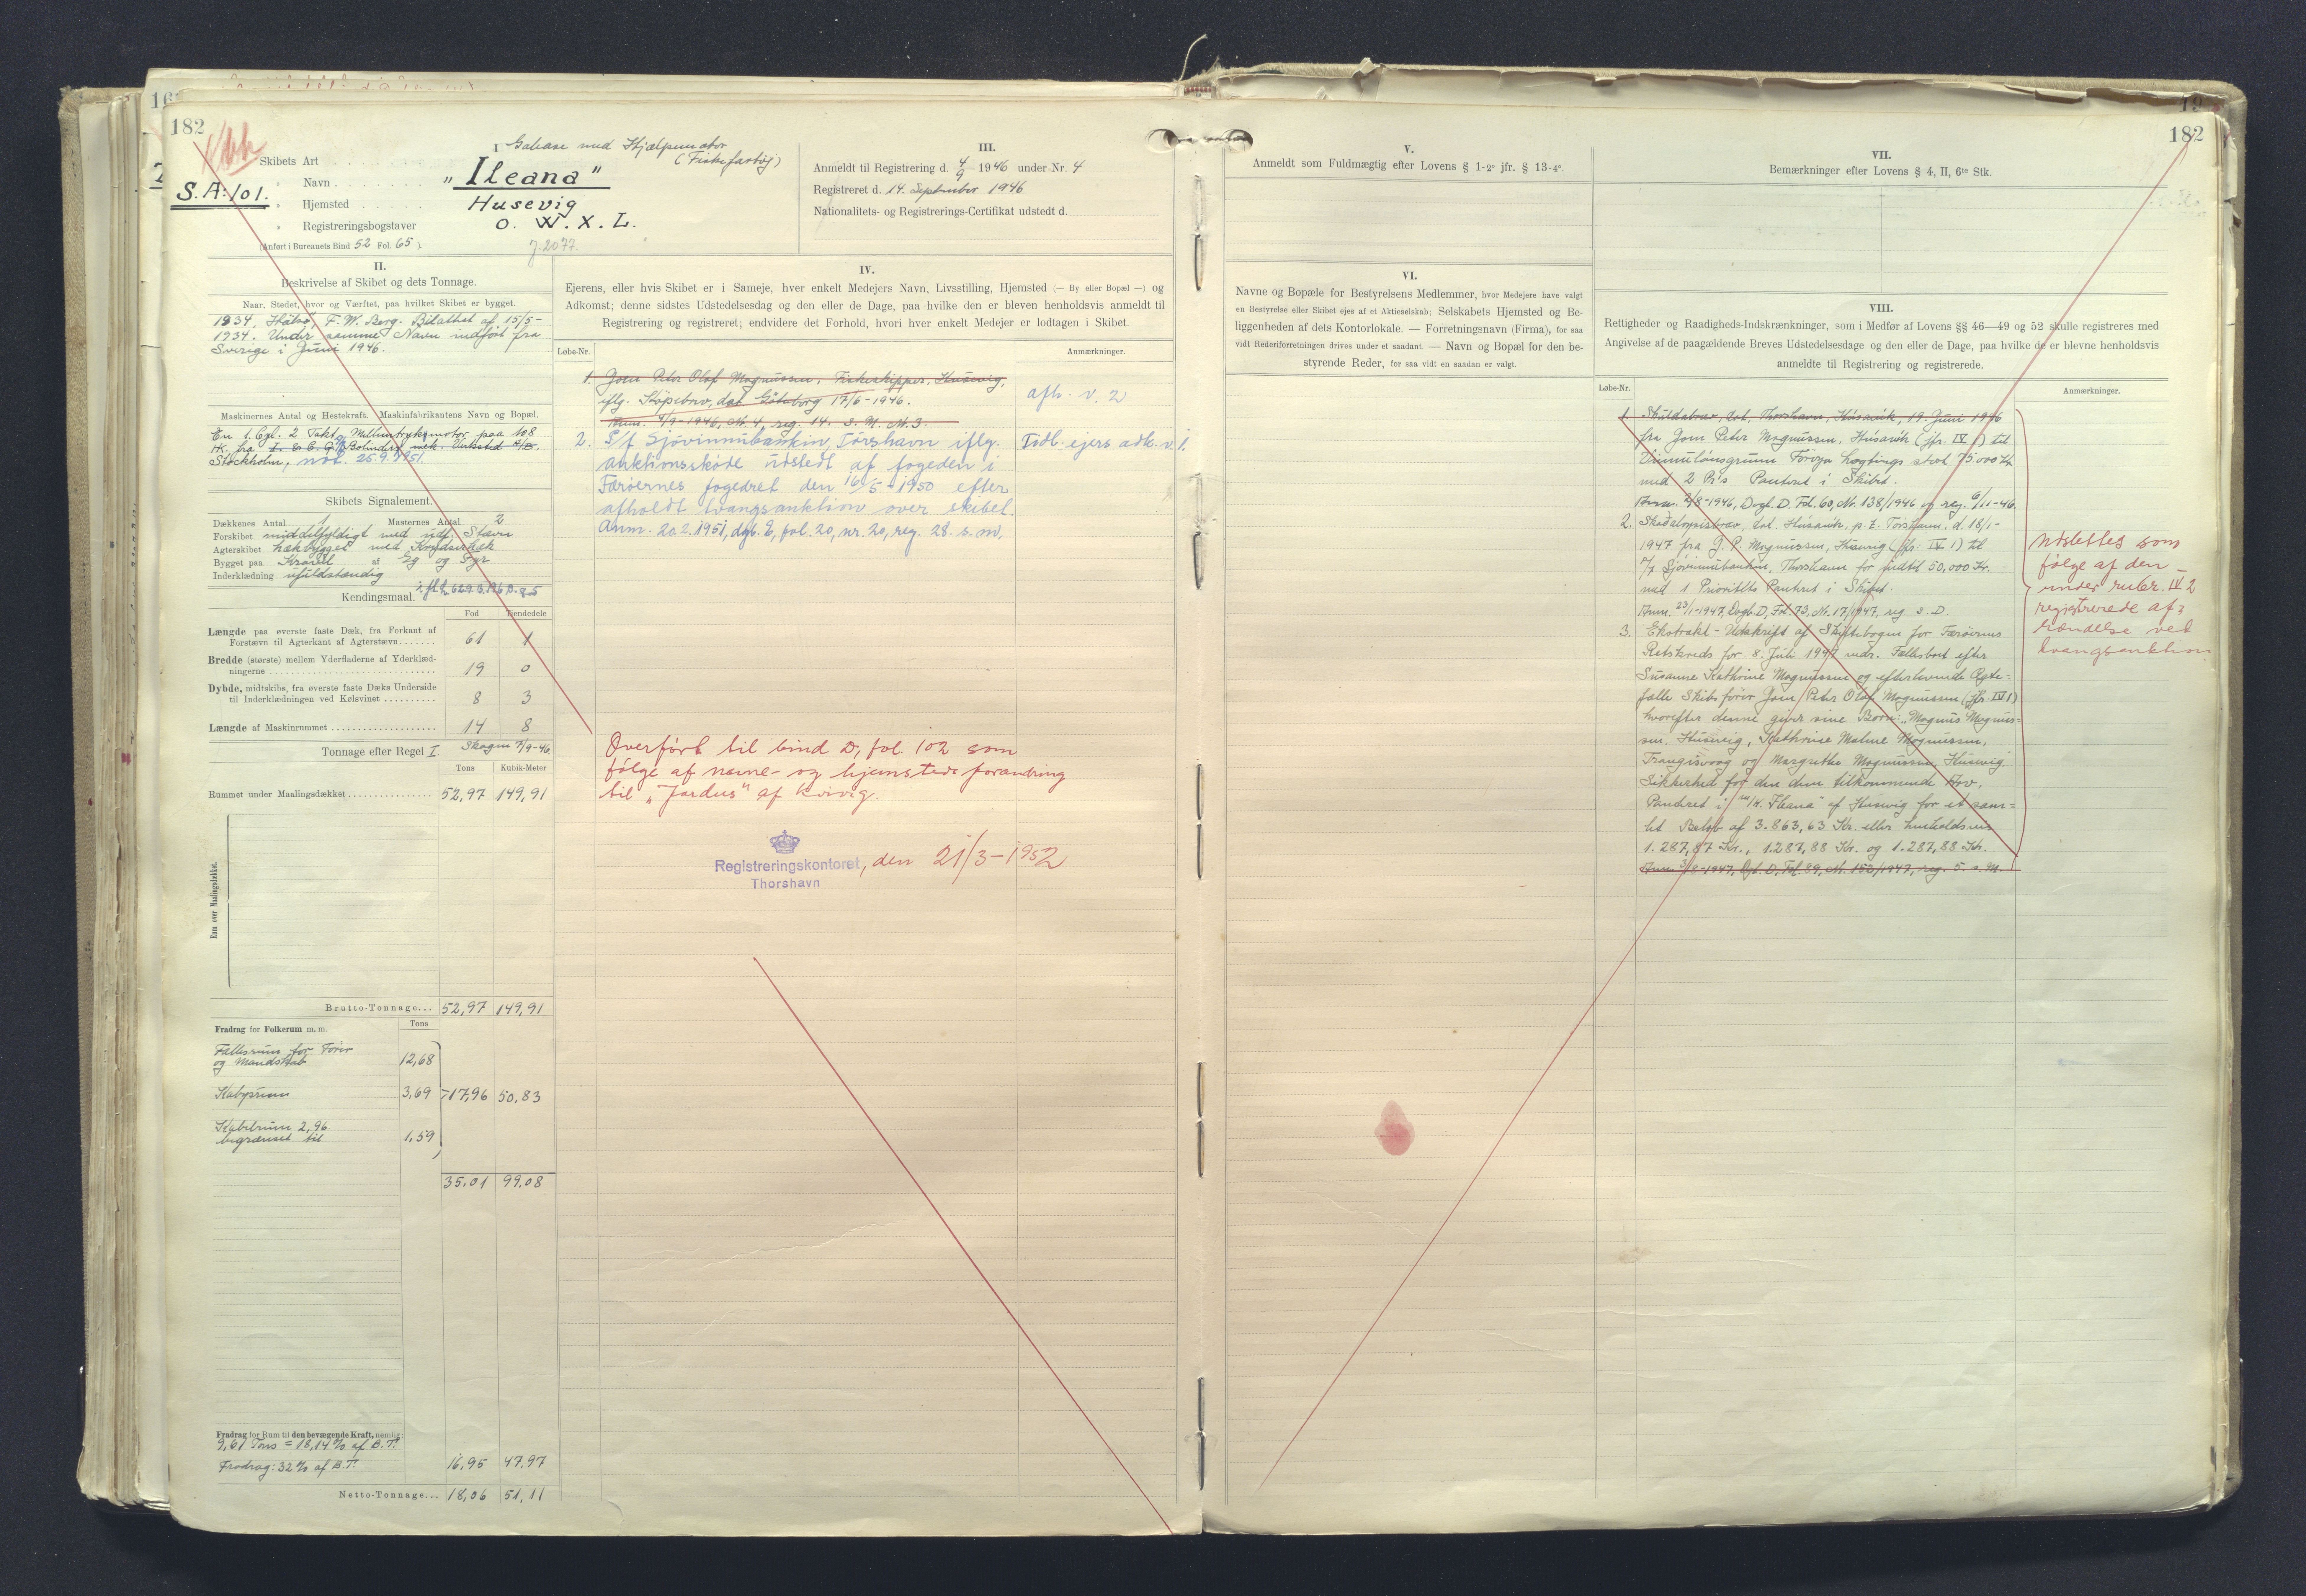 182
I
Skibets Art Galease med Hjælpemotor
(Fiskefartøj)
S.A:101.
» Navn „Ileana"
» Hjemsted Husevig
» Registreringsbogstaver O. W. X. L.
(Anført i Bureauets Bind 52 Fol. 65).
J. 2077.
II.
Beskrivelse af Skibet og dets Tonnage.
Naar, Stedet, hvor og Værftet, paa hvilket Skibet er bygget.
1934, F. W. Berg. Bilattest af 15/5-
1934. Under samme Navn indført fra
Sverige i Juni 1946.
Maskinernes Antal og Hestekraft. Maskinfabrikantens Navn og Bopæl.
En 1. Cyl. 2 Takts Mellemtryksmotor paa 108
HK. fra Bolinders mek. Verkstad A/B.
Stockholm, not. 25.9.1951.
Skibets Signalement.
Dækkenes Antal 1 Masternes Antal 2
Forskibet middelfyldigt med udf. Stævn
Agterskibet hækbygget med Krydserhæk
Bygget paa Kravel af Eg og Fyr
Inderklædning ufuldstændig
Kendingsmaal.
Fod Tiendedele
Længde paa øverste faste Dæk, fra Forkant af
Forstævn til Agterkant af Agterstævn 61 1
Bredde (største) mellem Yderfladerne af Yderklæd-
ningerne 19 0
Dybde, midtskibs, fra øverste faste Dæks Underside
til Inderklædningen ved Kølsvinet 8 3
Længde af Maskinrummet 14 8
Tonnage efter Regel I. Skagen 2/9-46.
Tons Kubik-Meter
Rummet under Maalingsdækket 52,97 149,91
Rum over Maalingsdækket.
Brutto-Tonnage... 52,97 149,91
Fradrag for Folkerum m. m. Tons
Fællesrum for Fører
og Mandskab 12,68
Kabysrum 3,69 17,96 50,83
Kabelrum 2,96
begrænset til 1,59
35,01 99,08
Fradrag for Rum til den bevægende Kraft, nemlig:
9,61 Tons = 18,14% af B.T.
Fradrag: 32% af B.T. 16,95 47,97
Netto-Tonnage... 18,06 51,11
III.
Anmeldt til Registrering d. 4/9 1946 under Nr. 4
Registreret d. 14. September 1946
Nationalitets- og Registrerings-Certifikat udstedt d.
IV.
Ejerens, eller hvis Skibet er i Sameje, hver enkelt Medejers Navn, Livsstilling, Hjemsted (— By eller Bopæl —) og
Adkomst; denne sidstes Udstedelsesdag og den eller de Dage, paa hvilke den er bleven henholdsvis anmeldt til
Registrering og registreret; endvidere det Forhold, hvori hver enkelt Medejer er lodtagen i Skibet.
Løbe-Nr. Anmærkninger.
1. Joen Peter Olaf Magnussen, Fiskeskipper, Husevig,
iflg. Köpebrev, dat Göteborg 17/6-1946. afh. v. 2
Anm. 4/9-1946, Nr. 4, reg. 14. s. M. Nr. 3.
2. P/f Sjóvinnubankin, Tórshavn iflg. Tidl. ejers adk. v. 1.
auktionsskøde udstedt af fogeden i
Færøernes fogedret den 16/5-1950 efter
afholdt tvangsauktion over skibet.
Anm. 20.2.1951, dgb. E, fol. 20, nr. 20, reg. 28. s. m.
Overført til bind D, fol. 102 som
følge af navne- og hjemstedsforandring
til „Jardus" af Kvivig.
Registreringskontoret, den 21/3-1952
Thorshavn
182
V.
Anmeldt som Fuldmægtig efter Lovens § 1-2° jfr. § 13-4°.
VI.
Navne og Bopæle for Bestyrelsens Medlemmer, hvor Medejere have valgt
en Bestyrelse eller Skibet ejes af et Aktieselskab; Selskabets Hjemsted og Be-
liggenheden af dets Kontorlokale. — Forretningsnavn (Firma), for saa
vidt Rederiforretningen drives under et saadant. — Navn og Bopæl for den be-
styrende Reder, for saa vidt en saadan er valgt.
VII.
Bemærkninger efter Lovens § 4, II, 6te Stk.
VIII.
Rettigheder og Raadigheds-Indskrænkninger, som i Medfør af Lovens §§ 46—49 og 52 skulle registreres med
Angivelse af de paagældende Breves Udstedelsesdage og den eller de Dage, paa hvilke de er blevne henholdsvis
anmeldte til Registrering og registrerede.
Løbe-Nr. Anmærkninger.
1. Skuldabræv, dat. Thorshavn, Húsavík, 19. Juni 1946
fra Joen Peter Magnussen, Húsavík (jfr. IV 1) til
Vinnulánsgrunn Føroya Løgtings stort 75.000 Kr.
med 2 Pr's Panteret i Skibet.
Anm. 2/8-1946, Dagb. D. Fol. 60, Nr. 138/1946 og reg. 6/11-46.
2. Skadesløsbrev, dat. Húsavík, p.t. Torshavn, d. 18/1-
1947 fra J. P. Magnussen, Husevig (jfr. IV 1) til
P/f Sjóvinnubankin, Thorshavn for indtil 50,000 Kr.
med 1 Prioritets Panteret i Skibet.
Anm. 23/1-1947, Dagb. D, Fol. 73, Nr. 17/1947, reg. s. D.
3. Ekstrakt-Udskrift af Skiftebogen for Færøernes
Retskreds for 8. Juli 1947 vedr. Fællesboet efter
Susanne Kathrine Magnussen og efterlevende Ægte-
fælle Skibsfører Joen Peter Olaf Magnussen (jfr. IV 1)
hvorefter denne giver sine Børn: Magnus Magnus-
sen, Husevig, Kathrine Maline Magnussen,
Frangisvaag og Margrethe Magnussen, Husevig
Sikkerhed for den dem tilkommende Arv,
Panteret i „Ileana" af Husevig for et sam-
let Beløb af 3.863,63 Kr. eller henholdsvis
1.287,87 Kr., 1.287,88 Kr. og 1.287,88 Kr.
Anm. 5/8-1947, Dgb. D, Fol. 89, Nr. 152/1947, reg. 5. s. M.
Udslettes som
følge af den
under rubr. IV 2
registrerede af-
hændelse ved
tvangsauktion